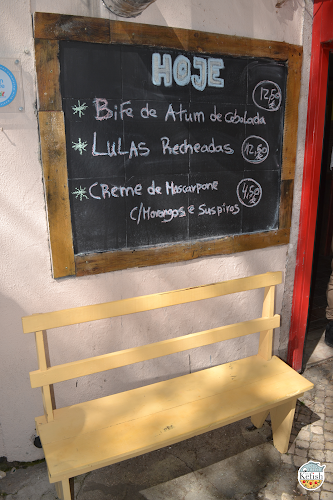 HOJE
* Bife de Atum de Cebolada 12,50
* LULAS Recheadas 12,50
* CREME de Mascarpone 4,50
C/Morangos e Suspiros